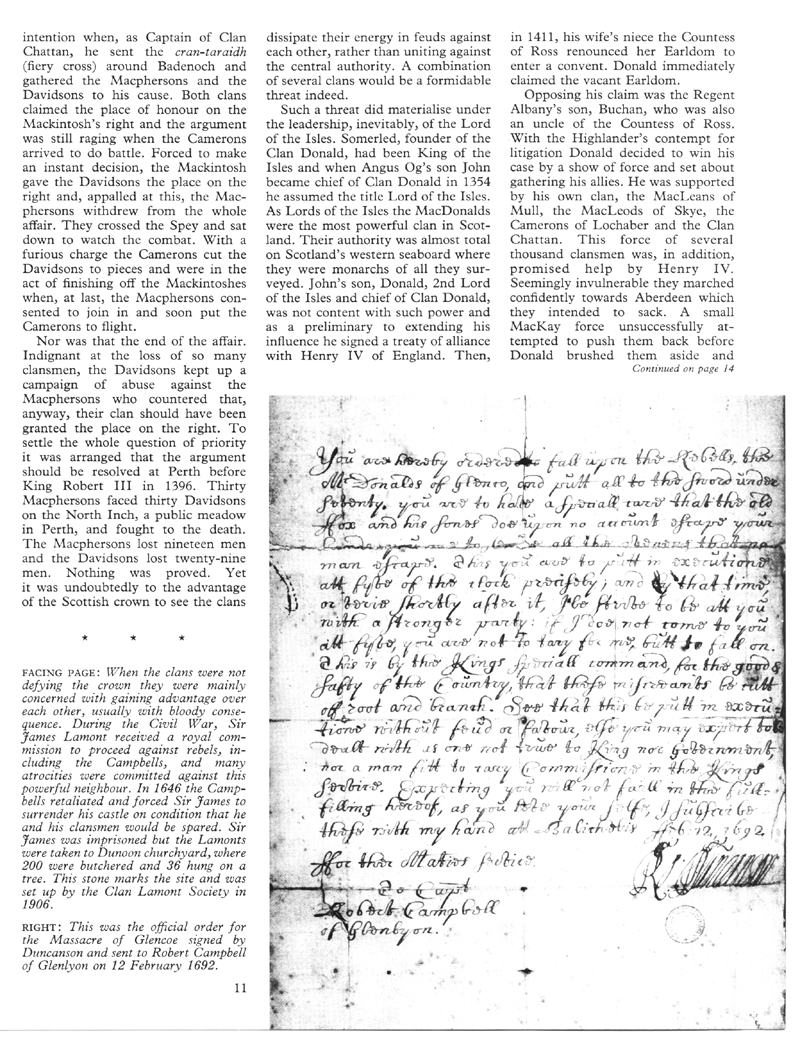 intention when, as Captain of Clan
Chattan, he sent the cran-taraidh
(fiery cross) around Badenoch and
gathered the Macphersons and the
Davidsons to his cause. Both clans
claimed the place of honour on the
Mackintosh's right and the argument
was still raging when the Camerons
arrived to do battle. Forced to make
an instant decision, the Mackintosh
gave the Davidsons the place on the
right and, appalled at this, the Mac-
phersons withdrew from the whole
affair. They crossed the Spey and sat
down to watch the combat. With a
furious charge the Camerons cut the
Davidsons to pieces and were in the
act of finishing off the Mackintoshes
when, at last, the Macphersons con-
sented to join in and soon put the
Camerons to flight.
Nor was that the end of the affair.
Indignant at the loss of so many
clansmen, the Davidsons kept up a
campaign of abuse against the
Macphersons who countered that,
anyway, their clan should have been
granted the place on the right. To
settle the whole question of priority
it was arranged that the argument
should be resolved at Perth before
King Robert III in 1396. Thirty
Macphersons faced thirty Davidsons
on the North Inch, a public meadow
in Perth, and fought to the death.
The Macphersons lost nineteen men
and the Davidsons lost twenty-nine
men. Nothing was proved. Yet
it was undoubtedly to the advantage
of the Scottish crown to see the clans
* * *
FACING PAGE: When the clans were not
defying the crown they were mainly
concerned with gaining advantage over
each other, usually with bloody conse-
quence. During the Civil War, Sir
James Lamont received a royal com-
mission to proceed against rebels, in-
cluding the Campbells, and many
atrocities were committed against this
powerful neighbour. In 1646 the Camp-
bells retaliated and forced Sir James to
surrender his castle on condition that he
and his clansmen would be spared. Sir
James was imprisoned but the Lamonts
were taken to Dunoon churchyard, where
200 were butchered and 36 hung on a
tree. This stone marks the site and was
set up by the Clan Lamont Society in
1906.
RIGHT: This was the official order for
the Massacre of Glencoe signed by
Duncanson and sent to Robert Campbell
of Glenlyon on 12 February 1692.
11
dissipate their energy in feuds against
each other, rather than uniting against
the central authority. A combination
of several clans would be a formidable
threat indeed.
Such a threat did materialise under
the leadership, inevitably, of the Lord
of the Isles. Somerled, founder of the
Clan Donald, had been King of the
Isles and when Angus Og's son John
became chief of Clan Donald in 1354
he assumed the title Lord of the Isles.
As Lords of the Isles the MacDonalds
were the most powerful clan in Scot-
land. Their authority was almost total
on Scotland's western seaboard where
they were monarchs of all they sur-
veyed. John's son, Donald, 2nd Lord
of the Isles and chief of Clan Donald,
was not content with such power and
as a preliminary to extending his
influence he signed a treaty of alliance
with Henry IV of England. Then,
in 1411, his wife's niece the Countess
of Ross renounced her Earldom to
enter a convent. Donald immediately
claimed the vacant Earldom.
Opposing his claim was the Regent
Albany's son, Buchan, who was also
an uncle of the Countess of Ross.
With the Highlander's contempt for
litigation Donald decided to win his
case by a show of force and set about
gathering his allies. He was supported
by his own clan, the MacLeans of
Mull, the MacLeods of Skye, the
Camerons of Lochaber and the Clan
Chattan. This force of several
thousand clansmen was, in addition,
promised help by Henry IV.
Seemingly invulnerable they marched
confidently towards Aberdeen which
they intended to sack. A small
MacKay force unsuccessfully at-
tempted to push them back before
Donald brushed them aside and
Continued on page 14
You are hereby ordered to fall upon the Rebells, the
McDonalds of Glenco, and putt all to the sword under
seventy. you are to have a speciall care that the old
ffox and his sones doe upon no account escape your
hands, you are to all the avenues that no
man escape. This you are to putt in executione
att fyve of the clock precisely; and by that time
or verie shortly after it, I'le strive to be att you
with a stronger party: if I doe not come to you
att fyve, you are not to tary for me, butt to fall on.
This is by the Kings speciall command, for the good &
safty of the Country, that these miscreants be cutt
off root and branch. See that this be putt in execu
tione without feud or favour, else you may expect to be
dealt with as one not true to King nor Government,
nor a man fitt to cary Commissione in the Kings
service. Expecting you will not faill in the full-
filling hereof, as you love your selfe, I subscribe
these with my hand att Balicholis ffeb 12, 1692
ffor ther Maties service
R. Duncanson
To Capt
Robert Campbell
of Glenlyon.